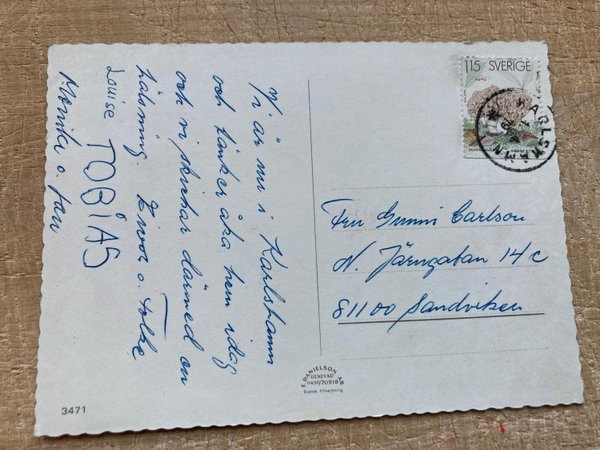 Vi är nu i Karlshamn
och tänker åka hem idag
och vi skickar därmed en
hälsning o. Folke
Louise TOBIAS
Monika o. Jan
115 SVERIGE
KARLSHAMN
Fru Gunni Carlson
N. Järngatan 14 c
81100 Sandviken
E. DANIELSON AB
GENEVAD
Svensk tillverkning.
3471